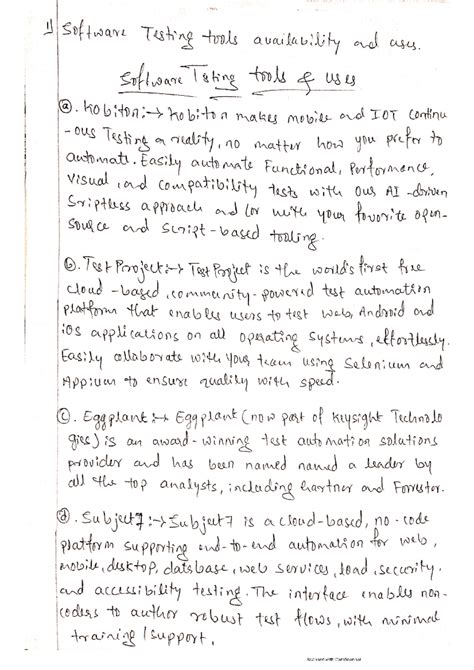 1) Software Testing tools availability and uses.
Software Testing tools & uses
(a). Kobiton:→ Kobiton makes mobile and IOT continu
-ous Testing a reality, no matter how you prefer to
automate. Easily automate Functional, Performance,
Visual, and compatibility tests with our AI-driven
Scriptless approach and/or with your favorite open-
source and Script-based tooling.
(b). TestProject:→ TestProject is the world's first free
cloud-based, community-powered test automation
platform that enables users to test web, Android and
iOS applications on all operating systems, effortlessly.
Easily collaborate with your team using Selenium and
Appium to ensure quality with speed.
(c). Eggplant:→ Eggplant (now part of Keysight Technolo
gies) is an award-winning test automation solutions
provider and has been named named a leader by
all the top analysts, including Gartner and Forrester.
(d). Subject7:→ Subject7 is a cloud-based, no-code
platform supporting end-to-end automation for web,
mobile, desktop, database, web services, load, security,
and accessibility testing. The interface enables non-
coders to author robust test flows, with minimal
training/support.
Scanned with CamScanner